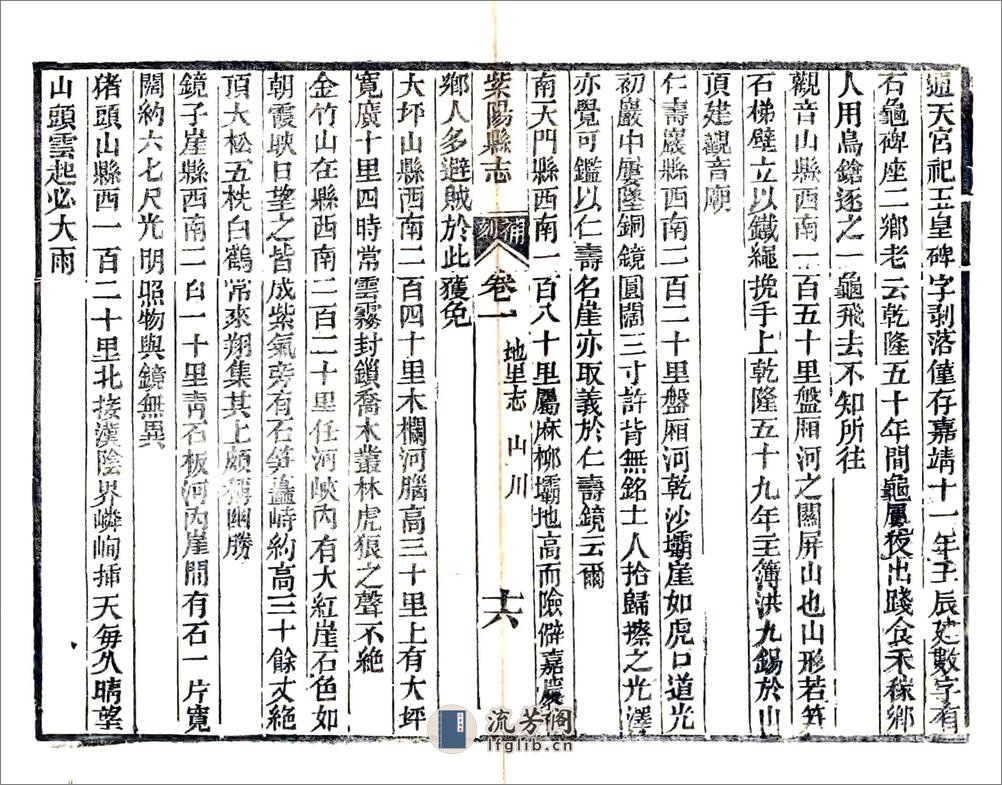 通天宮祀玉皇碑字剥落僅存嘉靖十一年壬辰建數字有
石龜碑座二鄉老云乾隆五十年間龜屢夜出踐食禾稼鄉
人用鳥鎗逐之一龜飛去不知所往
觀音山縣西南一百五十里盤厢河之關屏山也山形若笋
石梯壁立以鐵繩挽手上乾隆五十九年主簿洪九錫於山
頂建觀音廟
仁壽巖縣西南二百二十里盤厢河乾沙壩崖如虎口道光
初巖中屢墜銅鏡圓闊三寸許背無銘士人拾歸擦之光澤
亦覺可鑑以仁壽名崖亦取義於仁壽鏡云爾
南天門縣西南一百八十里屬麻柳壩地高而險僻嘉慶
鄉人多避賊於此獲免
紫陽縣志 補刻 卷一 地里志 山川 十六
大坪山縣西南二百四十里木欄河腦高三十里上有大坪
寬廣十里四時常雲霧封鎖喬木叢林虎狼之聲不絶
金竹山在縣西南二百二十里任河峽内有大紅崖石色如
朝霞映日望之皆成紫氣旁有石笋矗峙約高三十餘丈絶
頂大松五株白鶴常來翔集其上頗稱幽勝
鏡子崖縣西南二百一十里青石板河内崖間有石一片寬
闊約六七尺光明照物與鏡無異
猪頭山縣西一百二十里北接漢陰界嶙峋插天每久晴望
山頭雲起必大雨
流芳阁
lfglib.cn